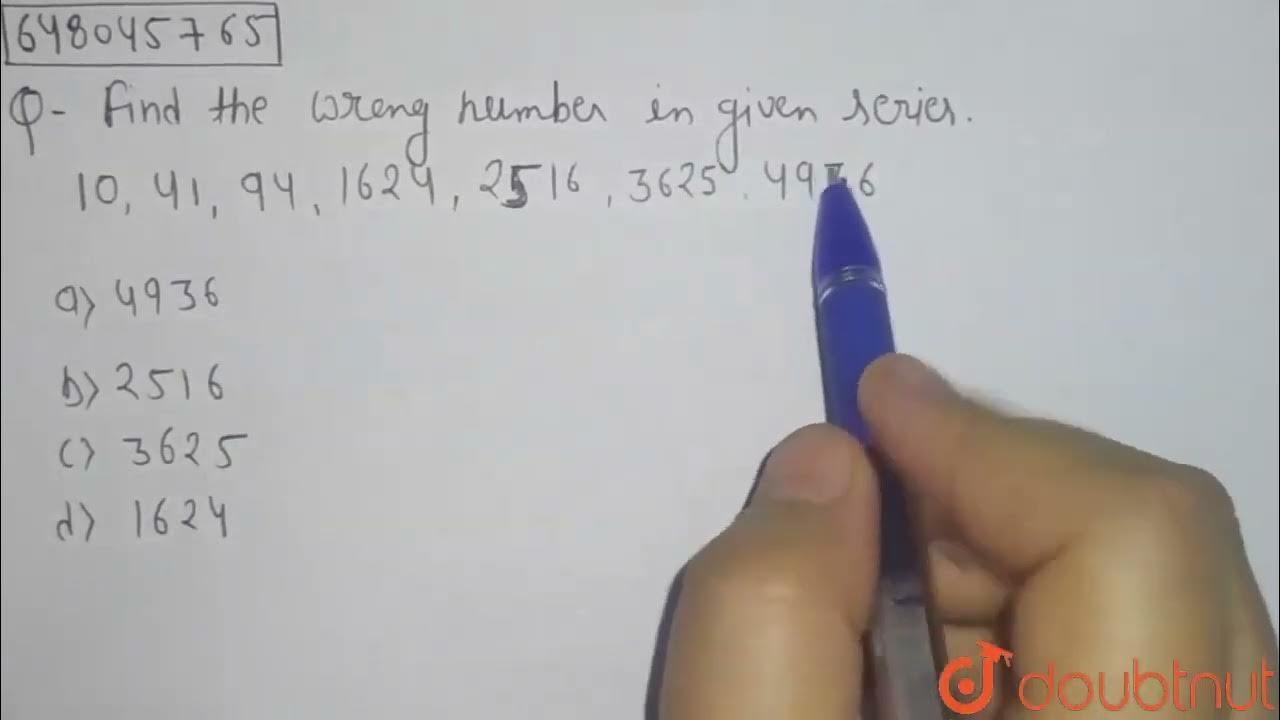 648045765
Q- Find the wrong number in given series.
10, 41, 94, 1624, 2516, 3625, 4936
a) 4936
b) 2516
c) 3625
d) 1624
doubtnut